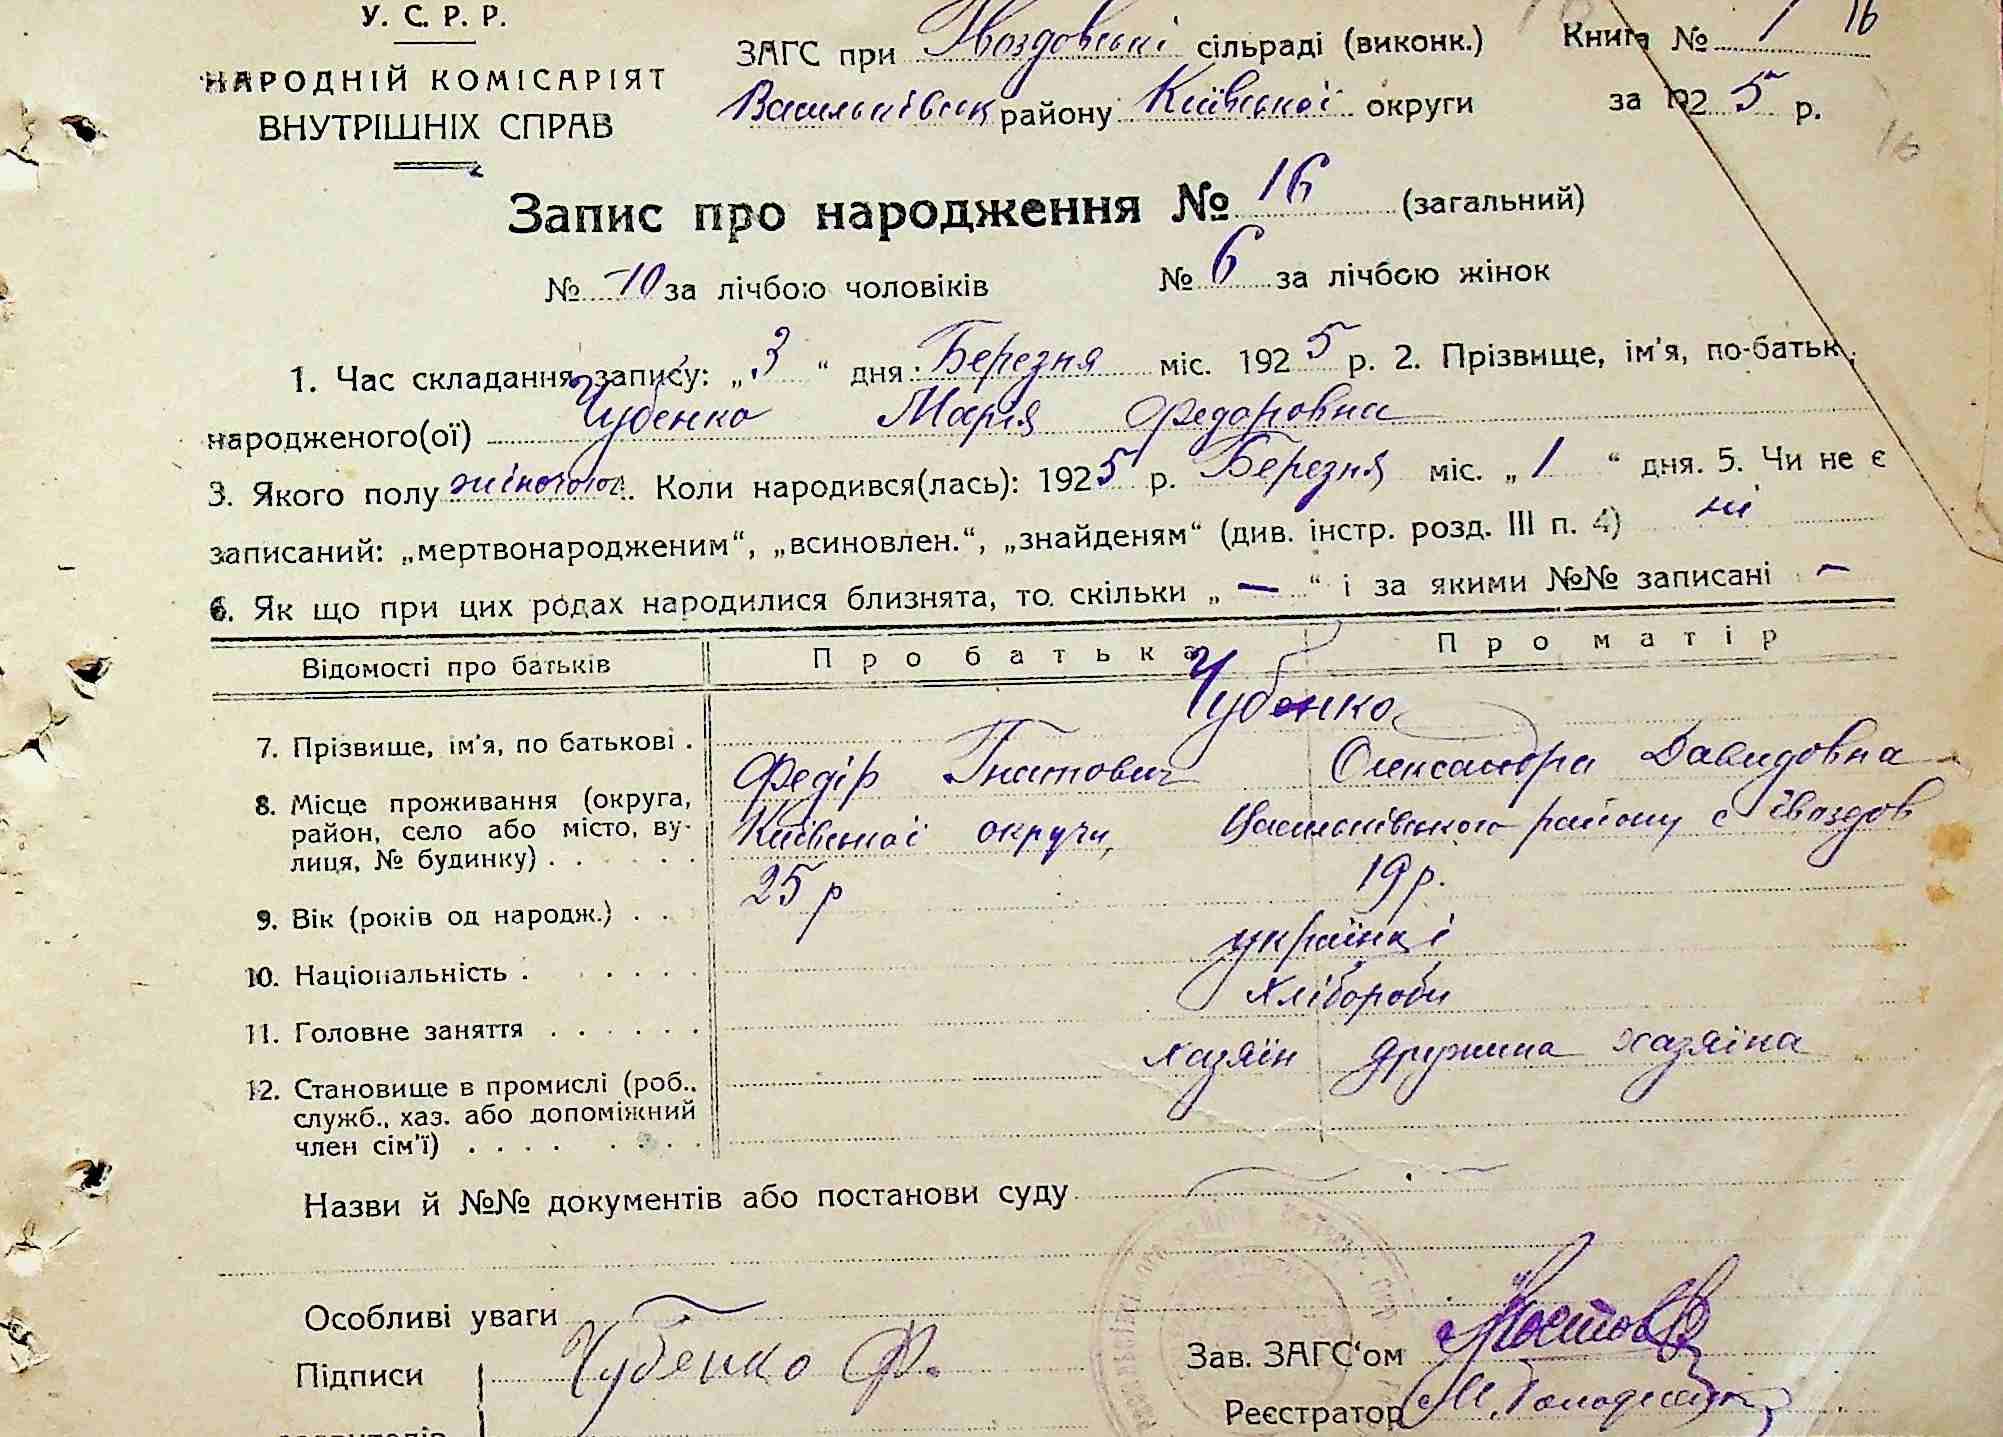 У. С. Р. Р.
НАРОДНІЙ КОМІСАРІЯТ
ВНУТРІШНІХ СПРАВ
ЗАГС при Гвоздовські сільраді (виконк.) Книга № 1 16
Васильківськ району Київської округи за 1925 р.
16
Запис про народження № 16 (загальний)
№ 10 за лічбою чоловіків № 6 за лічбою жінок
1. Час складання запису: „3“ дня Березня міс. 1925 р. 2. Прізвище, ім'я, по-батьк.
народженого(ої) Чубенко Марія Федоровна
3. Якого полу жіночого. Коли народився(лась): 1925 р. Березня міс. „1“ дня. 5. Чи не є
записаний: „мертвонародженим“, „всиновлен.“, „знайденям“ (див. інстр. розд. III п. 4) ні
6. Як що при цих родах народилися близнята, то скільки „—“ і за якими №№ записані —
Відомості про батьків Про батька Про матір
7. Прізвище, ім'я, по батькові . Чубенко
Федір Гнатович Олександра Давидовна
8. Місце проживання (округа, район, село або місто, вулиця, № будинку) . . . . . Київської округи, Васильківського району с Гвоздов
9. Вік (років од народж.) . . . 25 р 19 р.
10. Національність . . . . . . українці
11. Головне заняття . . . . . . хлібороби
12. Становище в промислі (роб., служб., хаз. або допоміжний член сім'ї) . . . . . . . . Хазяїн дружина хазяїна
Назви й №№ документів або постанови суду
Особливі уваги
Підписи Чубенко Ф.
Зав. ЗАГС‘ом
Реєстратор М.